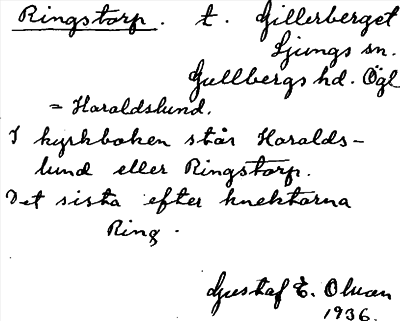 Ringstorp. t. Gillerberget
Ljungs sn.
Gullbergs hd. Ögl
= Haraldslund.
I kyrkboken står Haralds-
lund eller Ringstorp.
Det sista efter knektarna
Ring.
Gustaf E. Olman
1936.